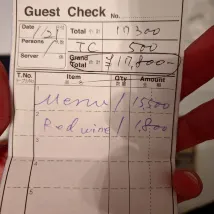 Guest Check No.
Date 1/2 Total 合計 17300
Persons TC 500
Server Grand Total ¥17,800-
T.No. Item Q'ty Amount
1 Menu / 15500
2 Red wine / 1,800
3
4
5